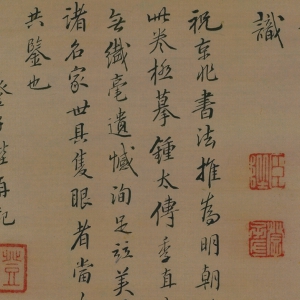 識
祝京兆書法推為明朝
此卷極摹鍾太傅季直
無纖毫遺憾洵足竝美
諸名家世具隻眼者當
共鑒也
再記